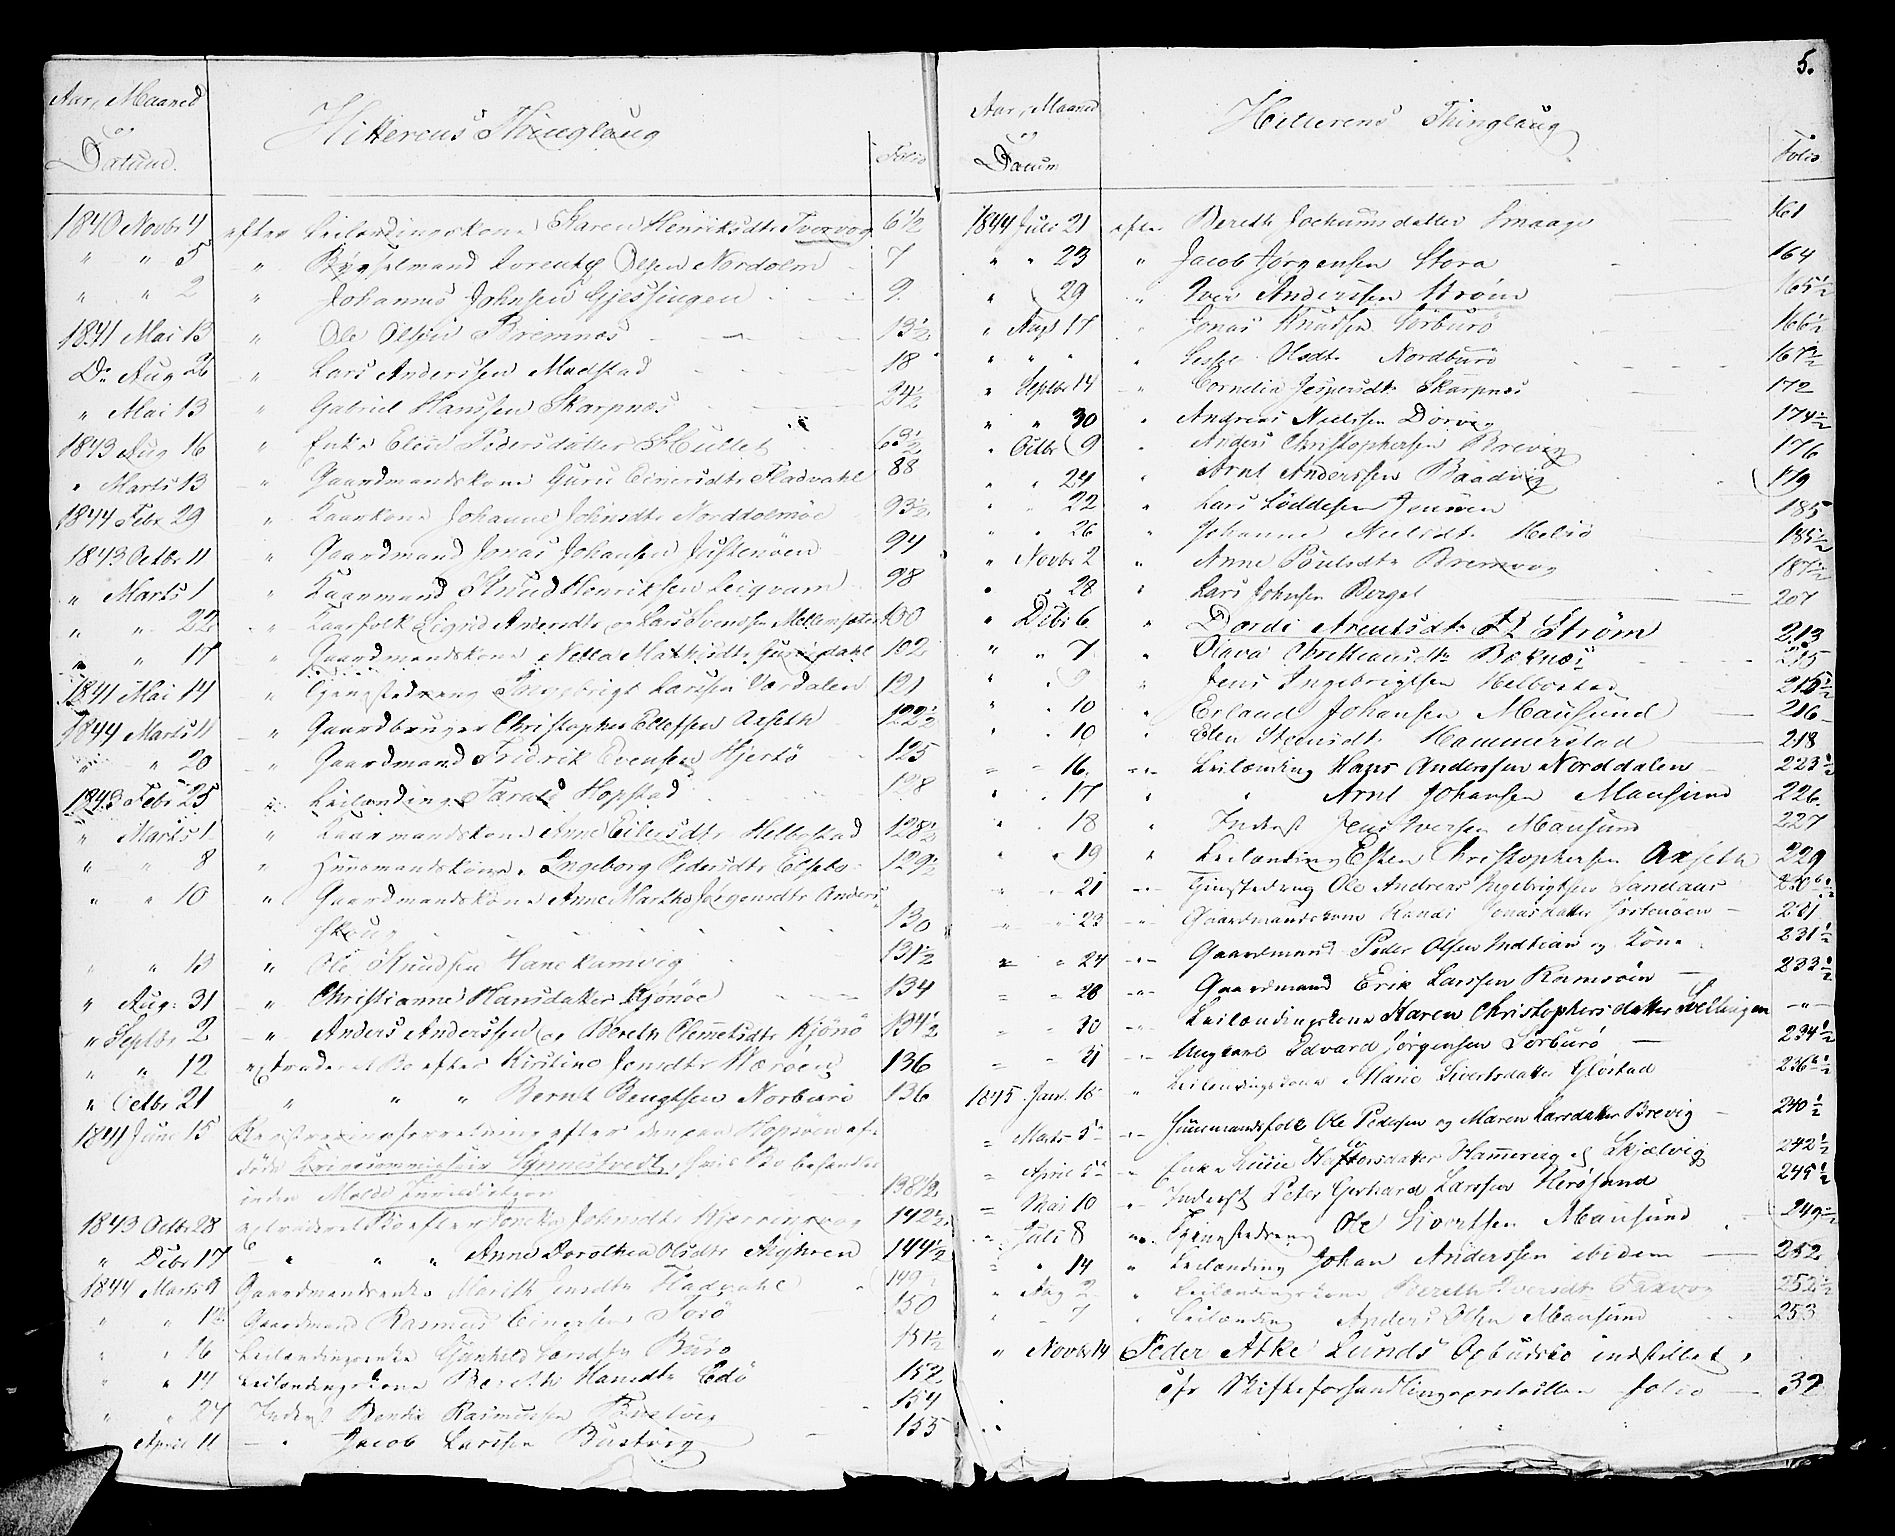 Aar, Maaned
og
Datum.
Hitterens Thinglaug
Folio
1840 Novbr 4 efter Leilændingskone Karen Henriksdtr Tvervog 6 1/2
" " 5 " Bygselmand Lorentz Olsen Nordolm 7
" " 2 " Johannes Johnsen Gjessingen 9
1841 Mai 13 " Ole Olsen Bremnes 13 1/2
Do Aug 26 " Lars Anderssen Madstad 18
" Mai 13 " Gabriel Hanssen Skarpnes 24 1/2
1843 Aug 16 " Enke Elen Pedersdatter Hullet 63 1/2
" Marts 13 " Gaardmandskone Guru Einersdtr Fladvahl 88
1844 Febr 29 " Kaarkone Johanne Johnsdtr Norddolmøe 93 1/2
1843 Octbr 11 " Gaardmand Jonas Johansen Justenøen 94
" Marts 1 " Kaarmand Knud Henriksen Leiqvam 98
" " 22 " Kaarfolk Sigrid Andersdtr og Lars Svendsen Mellemsæter 100
" " 17 " Gaardmandskone Nella Mathisdtr Gusdal 102
1841 Mai 14 " Gjengstedræng Ingebrigt Larssen Vardalen 121
1844 Marts 11 " Gaardbruger Christopher Ellefsen Axseth 122 1/2
" " 20 " Gaardmand Fredrik Evensen Hjertø 125
1843 Febr 25 " Leilænding Tarald Hopstad 128
" Marts 1 " Kaarmandskone Anne Eilersdtr Helbostad 128 1/2
" " 8 " Huusmandskone Ingeborg Pedersdtr Eidsbo 129 1/2
" " 10 " Gaardmandskone Anne Martha Jørgensdtr Anders-
skoug 130
" " 13 " Ole Knudsen Hanekamvig 131 1/2
" Aug: 31 " Christianne Hansdatter Kjønøe 134
" Septbr 2 " Anders Anderssen og Bereth Clemetsdtr Kjønø 134 1/2
" " 12 extraderet Bo efter Kirstine Jensdtr Værøen 136
" Octbr 21 " " " Bernt Bengtsen Norburø 136
1841 Juni 15 Registreringsforretning efter den paa Hopsøen af-
døde Synnestvedt, hvis Bo behandles
under Molde Jurisdiction 138 1/2
1843 Octbr 28 extraderet Bo efter Johnsdtr Kjerringvog 142 1/2
" Decbr 17 " " " Anne Dorothea Olsdtr 144 1/2
1844 Marts 9 Gaardmandsenke Mareth Fladvahl 149
" " 12 Gaardmand Rasmus Einersen 150
" " 16 Leilændingsenke Gunhild Burø 151 1/2
" " 14 Leilændingskone Bereth Hansdtr Edø 152
" " 27 Inderst Bendix Rasmussen 154
" April 11 — " Jacob Larssen Bustvig 155
5.
Aar, Maaned
og
Datum
Hitterens Thinglaug
Folio
1844 Juli 21 efter Bereth Jochumsdatter Smaage 161
" " 23 " Jacob Jørgensen Stora 164
" 29 " Iver Anderssen Strøm 165 1/2
" Augst 17 " Jonas Knudsen Sørburø 166 1/2
" " " " Olsdtr Nordburø 167 1/2
" Septbr 14 " Cornelia Jespersdtr Skarpnes 172
" " 30 " Andreas Nielssen Dørvig 174 1/2
" Octbr 9 " Anders Christophersen Brevig 176
" " 24 " Arnt Anderssen Baadvig 179
" " 22 " Lars Løddesen 185
" " 26 " Johanne Nielsdtr 185 1/2
" Novbr 2 " Anne Poulsdtr Bremvog 187 1/2
" " 28 " Lars Johnsen Berget 207
" Decbr 6 " Dordi Arentsdtr Strøm 213
" " 7 " Olava Christiansdtr Boknes 215
" " 9 " Jens Ingebrigtsen Helbostad 215 1/2
" " 10 " Erland Johansen Mausund 216
" " 10 " Elen Steensdtr Hammerstad 218
" " 16 " Leilænding Hans Anderssen Norddalen 223 1/2
" " 17 " " Arnt Johansen Mausund 226
" " 18 " Inderst Jens Iversen Mausund 227
" " 19 " Leilænding Esten Christophersen Axseth 229
" " 21 " Gjengstedræng Ole Andreas Ingebrigtsen Sandaas 230
" " 23 " Gaardmandskone Randi Jonasdatter Justenøen 231
" " 24 " Gaardmand Peder Olsen Indtian og Kone 231 1/2
" " 28 " Gaardmand Erik Larssen Ramsøen 233 1/2
" " 30 " Leilændingskone Karen Christophersdatter Sælingen "
" " 31 " Ungkarl Edvard Jørgensen Sørburø 234 1/2
1845 Jan. 16 " Leilændingskone Marie Sivertsdatter Gløstad 236 1/2
" Marts 5 " Huusmandsfolk Ole Pedersen og Maren Larsdatter Brevig 240 1/2
" April 5 " Enke Hammervig og Skjælvig 242 1/2
" Mai 10 " Inderst Peter Gerhard Larssen Kirøsund 245 1/2
" Juli 8 " Gjengstedræng Ole Sivertsen Mausund 249 1/2
" " 14 " Leilænding Johan Anderssen ibidem 252
" Aug 2 " Leilændingskone Bereth Iversdtr 252 1/2
" " 7 " Leilænding Anders Olsen Mausund 253
" Novbr 14 Peder Atke Lunds Opbudsbo indstillet,
cfr Skifteforhandlingsprotocollen folio 32